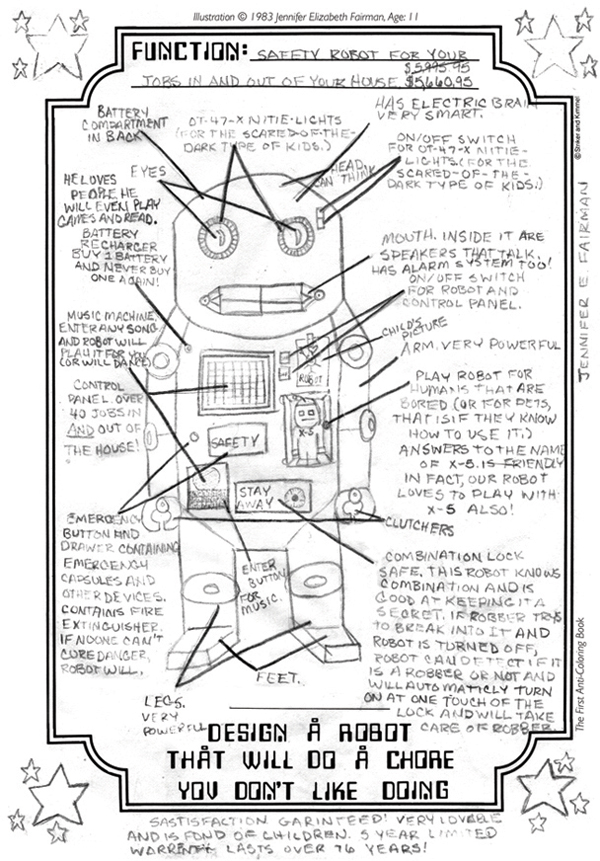 Illustration © 1983 Jennifer Elizabeth Fairman, Age: 11
FUNCTION: SAFETY ROBOT FOR YOUR
$5,995.95
JOBS IN AND OUT OF YOUR HOUSE $5,660.95
BATTERY
COMPARTMENT
IN BACK
OT-47-X NITIE-LIGHTS
(FOR THE SCARED-OF-THE-
DARK TYPE OF KIDS.)
HAS ELECTRIC BRAIN
VERY SMART.
HEAD
CAN THINK
ON/OFF SWITCH
FOR OT-47-X NITIE-
LIGHTS. (FOR THE
SCARED-OF-THE-
DARK TYPE OF KIDS.)
EYES
HE LOVES
PEOPLE. HE
WILL EVEN PLAY
GAMES AND READ.
BATTERY
RECHARGER
BUY 1 BATTERY
AND NEVER BUY
ONE AGAIN!
MOUTH. INSIDE IT ARE
SPEAKERS THAT TALK.
HAS ALARM SYSTEM TOO!
ON/OFF SWITCH
FOR ROBOT AND
CONTROL PANEL.
MUSIC MACHINE
ENTER ANY SONG
AND ROBOT WILL
PLAY IT FOR YOU
(OR WILL DANCE)
CHILD'S
PICTURE
ROBOT
ARM. VERY POWERFUL
CONTROL
PANEL. OVER
40 JOBS IN
AND OUT OF
THE HOUSE!
PLAY ROBOT FOR
HUMANS THAT ARE
BORED (OR FOR PETS,
THAT IS IF THEY KNOW
HOW TO USE IT.)
ANSWERS TO THE NAME
OF X-5. IS FRIENDLY
IN FACT, OUR ROBOT
LOVES TO PLAY WITH
X-5 ALSO!
X-5
SAFETY
STAY
AWAY
CLUTCHERS
EMERGENCY
BUTTON AND
DRAWER CONTAINING
EMERGENCY
CAPSULES AND
OTHER DEVICES.
CONTAINS FIRE
EXTINGUISHER.
IF NO ONE CAN'T
CURE DANGER,
ROBOT WILL.
ENTER
BUTTON
FOR
MUSIC.
COMBINATION LOCK
SAFE. THIS ROBOT KNOWS
COMBINATION AND IS
GOOD AT KEEPING IT A
SECRET. IF ROBBER TRYS
TO BREAK INTO IT AND
ROBOT IS TURNED OFF,
ROBOT CAN DETECT IF IT
IS A ROBBER OR NOT AND
WILL AUTOMATICLY TURN
ON AT ONE TOUCH OF THE
LOCK AND WILL TAKE
CARE OF ROBBER.
FEET.
LEGS.
VERY
POWERFUL
DESIGN A ROBOT
THAT WILL DO A CHORE
YOU DON'T LIKE DOING
SASTISFACTION GARINTEED! VERY LOVEABLE
AND IS FOND OF CHILDREN. 5 YEAR LIMITED
LASTS OVER 76 YEARS!
©Striker and Kimmel
JENNIFER E. FAIRMAN
The First Anti-Coloring Book